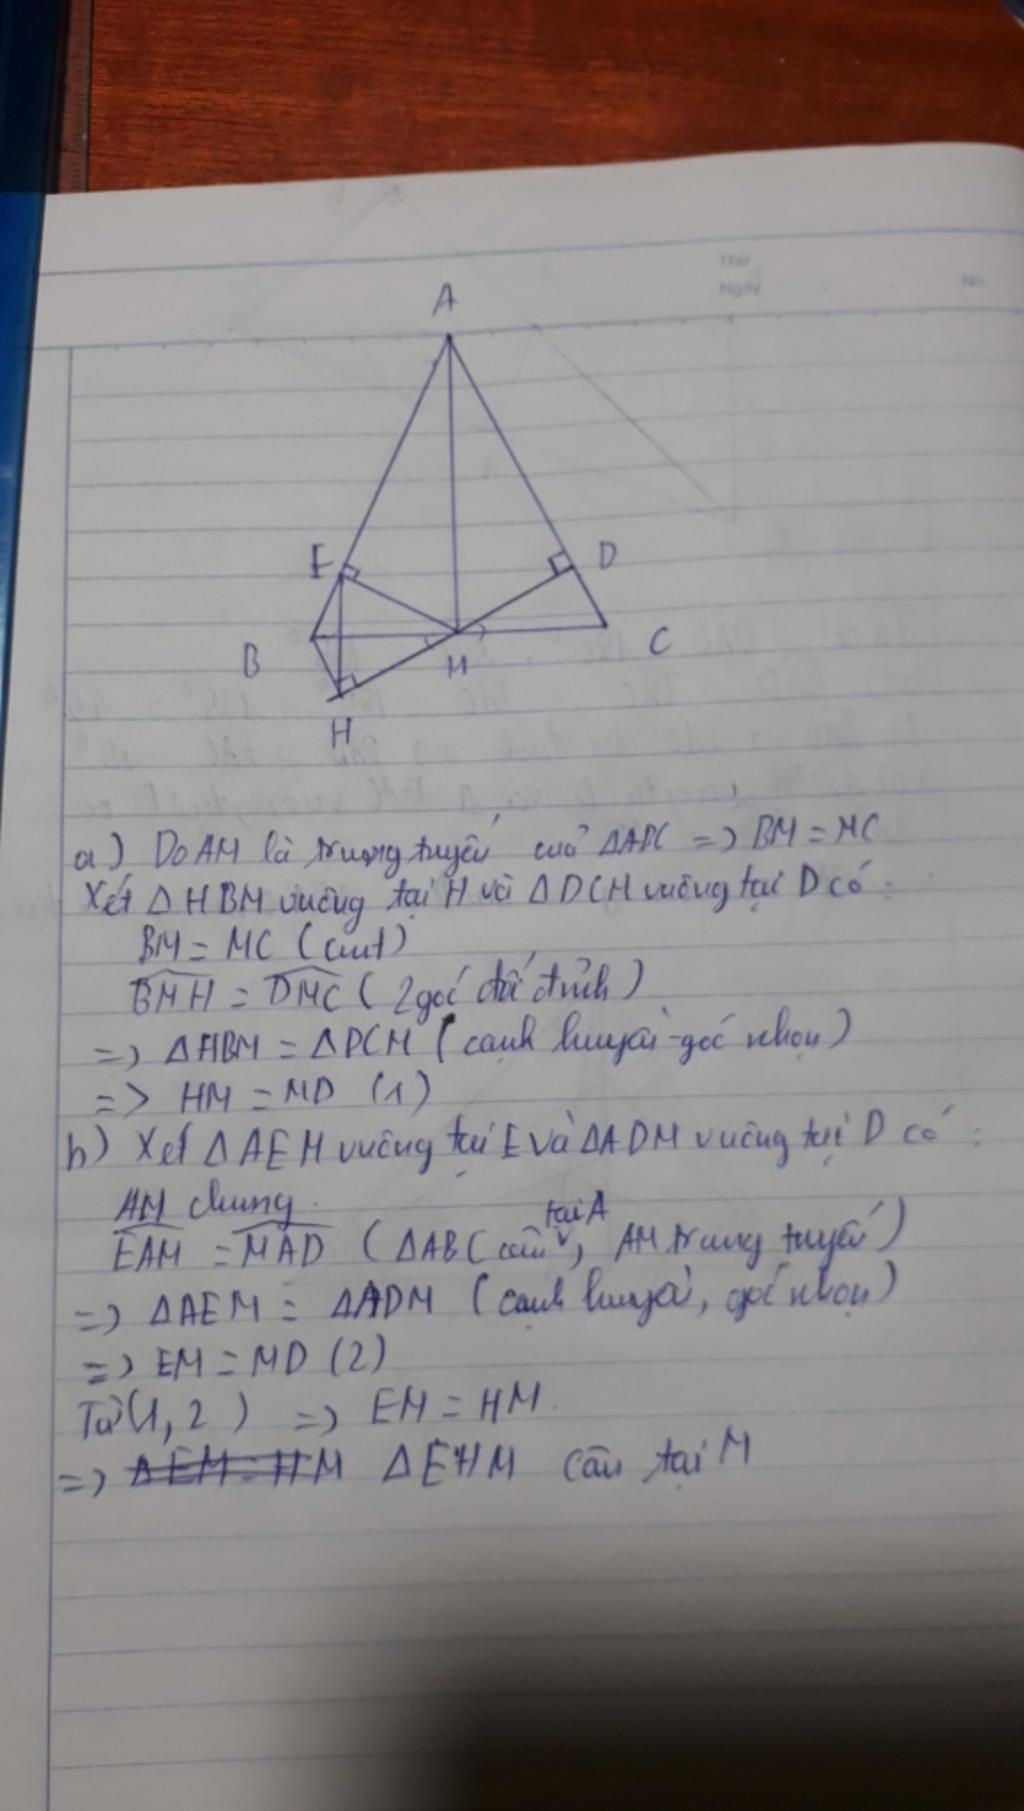 Thứ
Ngày
No
A
E
D
B
M
C
H
a) Do AM là trung tuyến của ΔABC => BM = MC
Xét ΔHBM vuông tại H và ΔDCM vuông tại D có:
BM = MC (cmt)
BMH = DMC (2 góc đối đỉnh)
=> ΔHBM = ΔDCM (cạnh huyền-góc nhọn)
=> HM = MD (1)
b) Xét ΔAEM vuông tại E và ΔADM vuông tại D có:
AM chung.
EAM = MAD (ΔABC cân tại A, AM trung tuyến)
=> ΔAEM = ΔADM (cạnh huyền, góc nhọn)
=> EM = MD (2)
Từ (1, 2) => EM = HM.
=> ΔEM = HM ΔEHM cân tại M